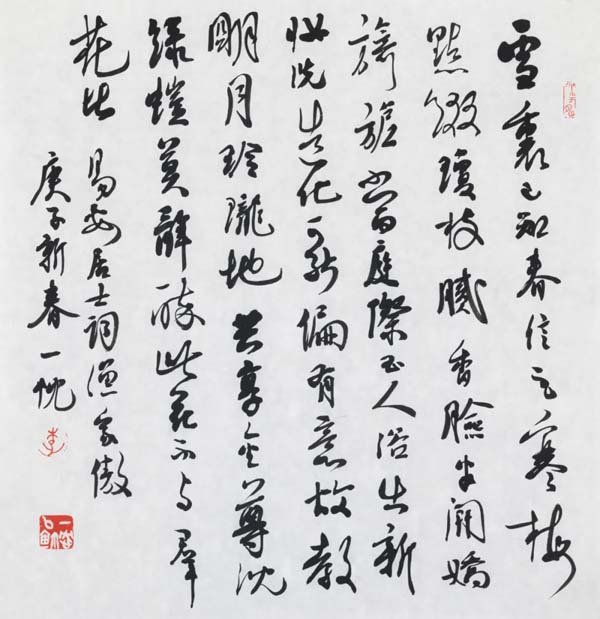 雪裏已知春信至寒梅
點綴瓊枝膩香臉半開嬌
旖旎當庭際玉人浴出新
妝洗造化可能偏有意故教
明月玲瓏地共享金尊沈
綠蟻莫辭醉此花不与羣
花比
易安居士詞漁家傲
庚子新春一忱
李